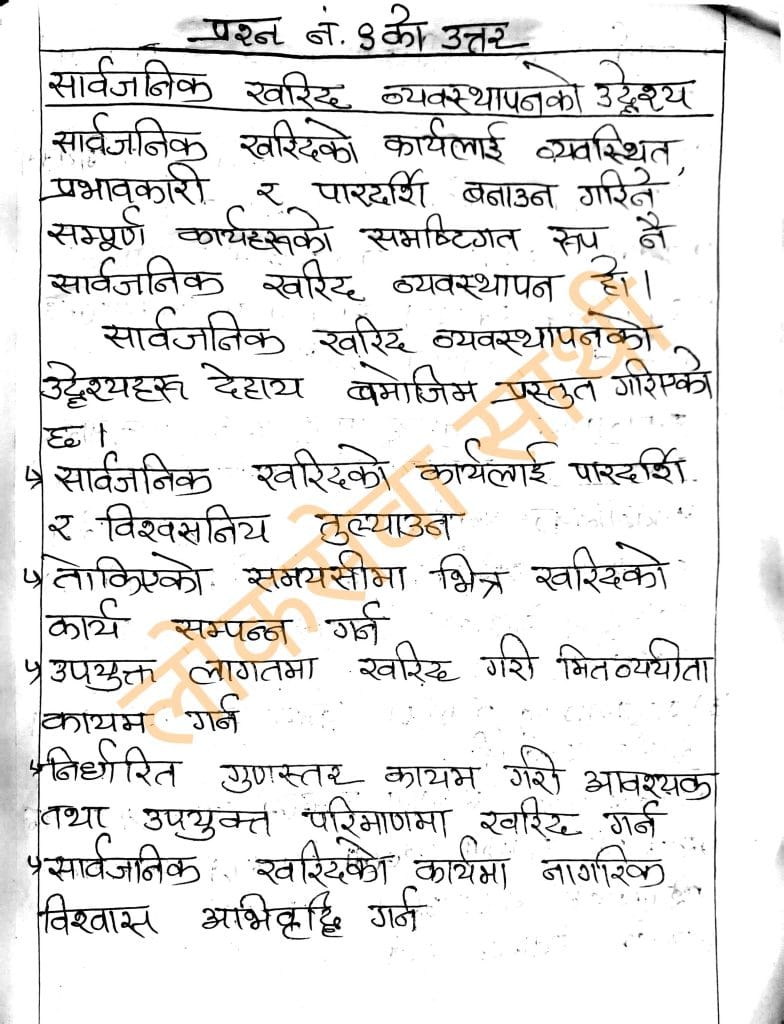 प्रश्न नं. ९ को उत्तर
सार्वजनिक खरिद व्यवस्थापनको उद्देश्य
सार्वजनिक खरिदको कार्यलाई व्यवस्थित,
प्रभावकारी र पारदर्शि बनाउन गरिने
सम्पूर्ण कार्यहरूको समष्टिगत रूप नै
सार्वजनिक खरिद व्यवस्थापन हो।
सार्वजनिक खरिद व्यवस्थापनको
उद्देश्यहरू देहाय बमोजिम प्रस्तुत गरिएको
छ।
↳ सार्वजनिक खरिदको कार्यलाई पारदर्शि
र विश्वसनिय तुल्याउन
↳ तोकिएको समयसीमा भित्र खरिदको
कार्य सम्पन्न गर्न
↳ उपयुक्त लागतमा खरिद गरी मितव्ययीता
कायम गर्न
↳ निर्धारित गुणस्तर कायम गरी आवश्यक
तथा उपयुक्त परिमाणमा खरिद गर्न
↳ सार्वजनिक खरिदको कार्यमा नागरिक
विश्वास अभिवृद्धि गर्न
लोकसेवा साथी